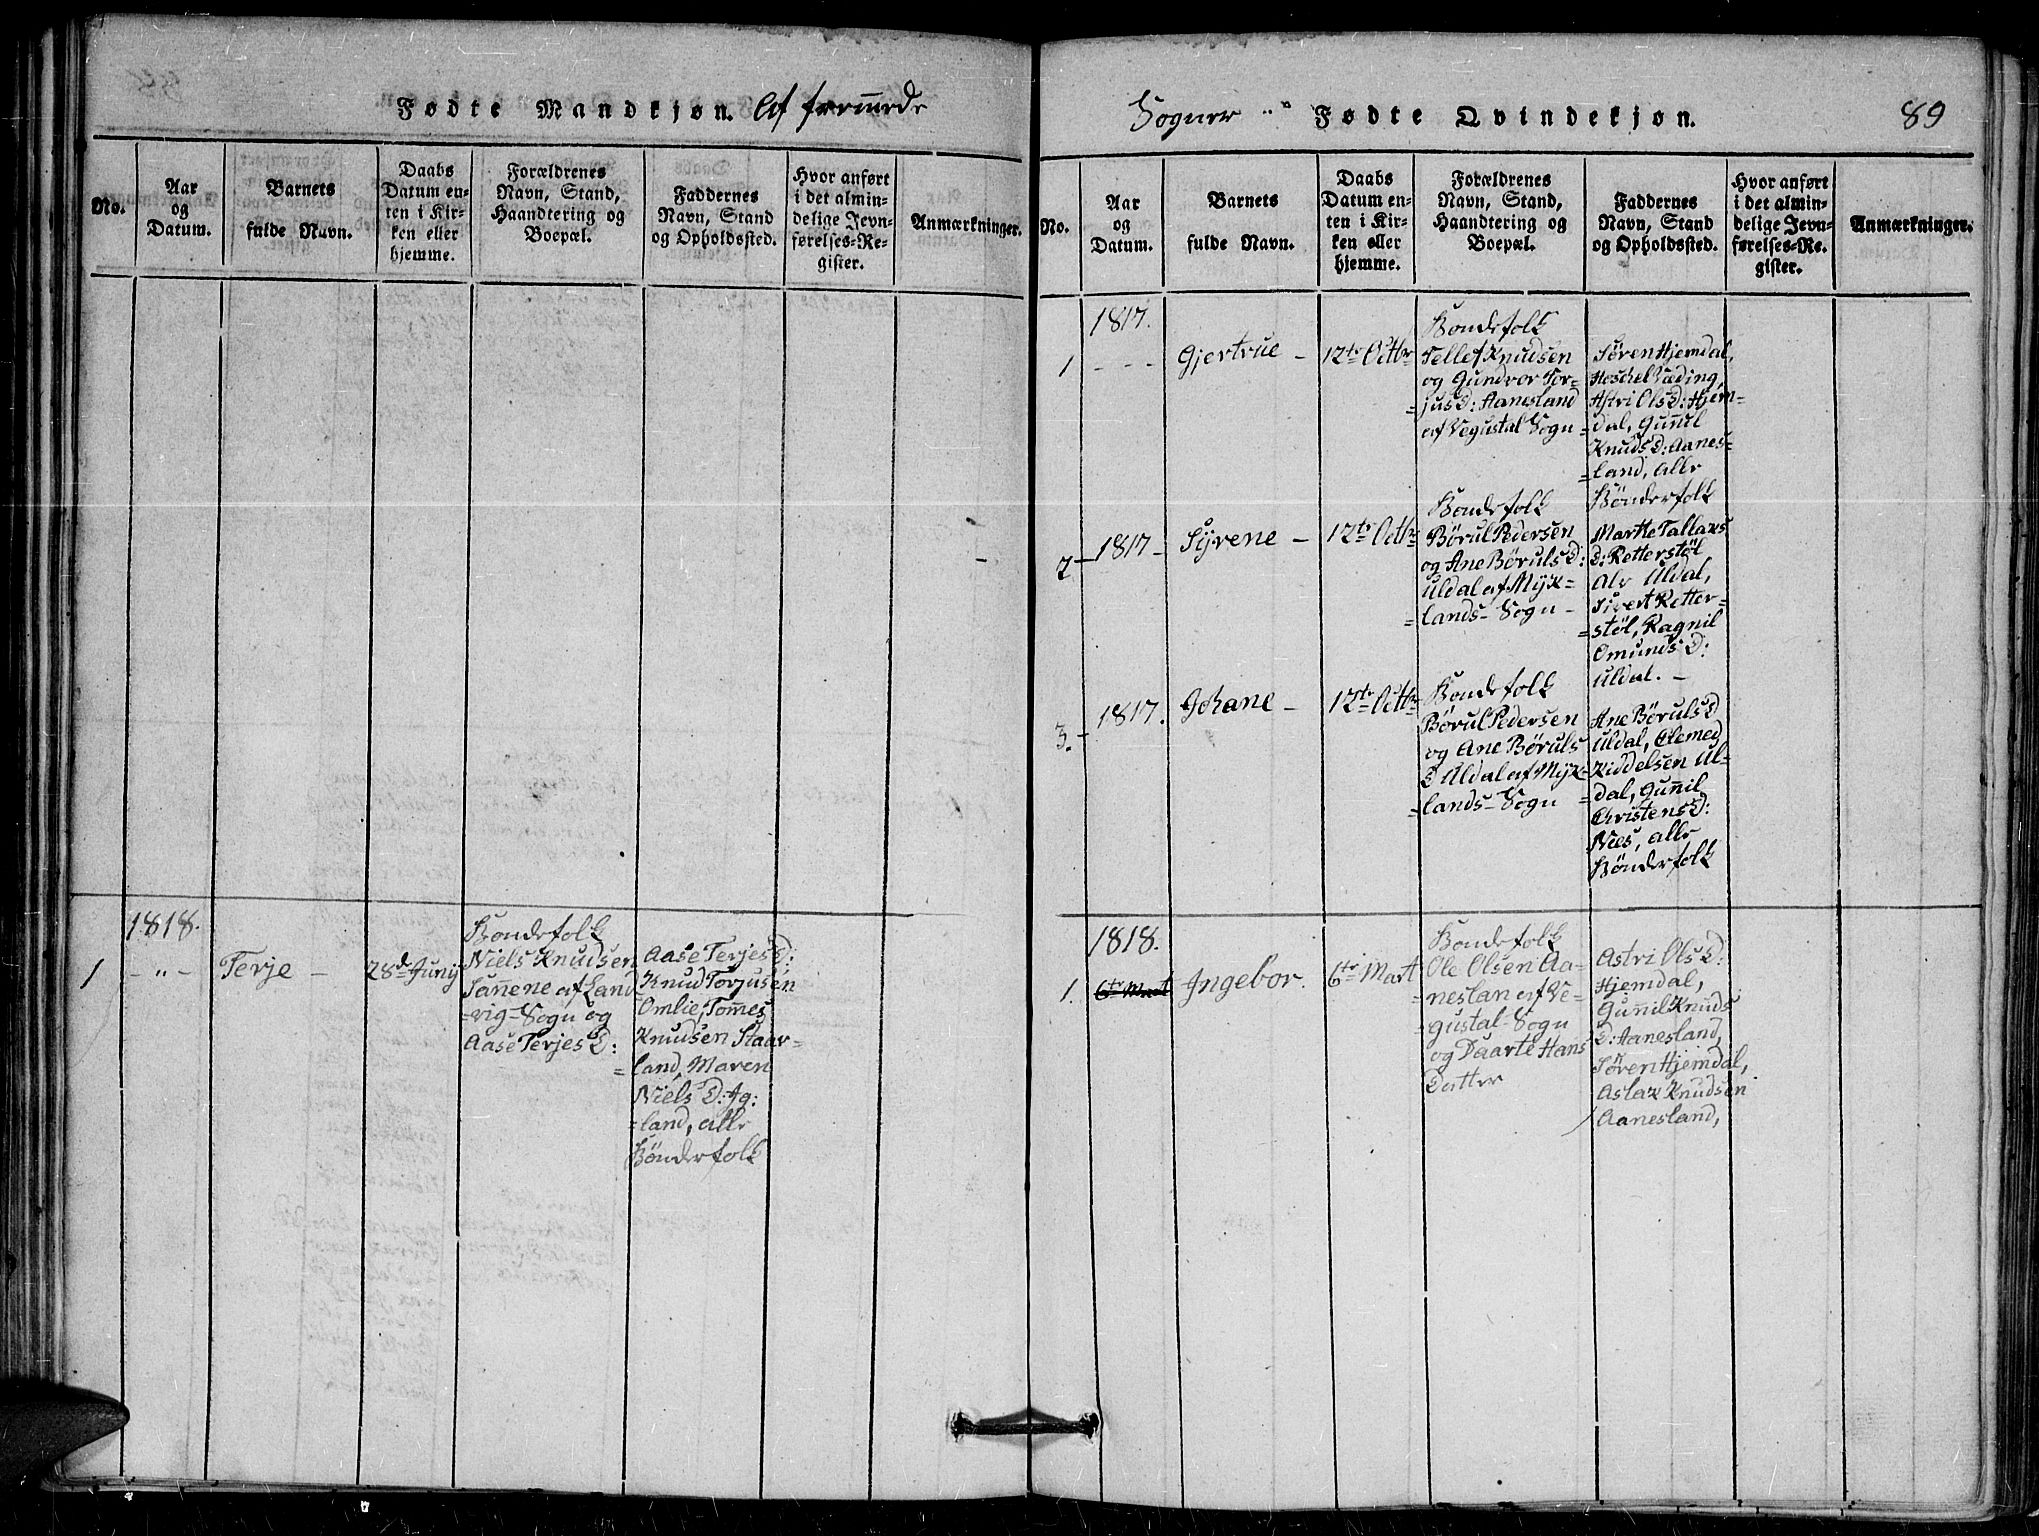 Fødte Mandkjøn. Af fremede
No.
Aar
og
Datum.
Barnets
fulde Navn.
Daabs
Datum en-
ten i Kir-
ken eller
hjemme.
Forældrenes
Navn, Stand,
Haandtering og
Boepæl.
Faddernes
Navn, Stand
og Opholdssted.
Hvor anført
i det almin-
delige Jevn-
førelses-Re-
gister.
Anmærkninger.
1818.
1 - " -
Terje -
28de Junij
Bondefolk
Niels Knudsen
Sanene af Land
=vig-Sogn og
Aase Terjes D:
Aase Terjes D:
Knud Torjusen
Omlie, Tommes
Knudsen Staar-
=land, Maren
Niels D: Ig:
=land, alle
Bønderfolk
Sogner
Fødte Qvindekjøn.
89
No.
Aar
og
Datum.
Barnets
fulde Navn.
Daabs
Datum en-
ten i Kir-
ken eller
hjemme.
Forældrenes
Navn, Stand,
Haandtering og
Boepæl.
Faddernes
Navn, Stand
og Opholdssted.
Hvor anført
i det almin-
delige Jevn-
førelses-Re-
gister.
Anmærkninger.
1817.
1 - - -
Gjertrue -
12te Octbr
Bondefolk
Tellef Knudsen
og Gundvor Tor-
=jus D: Aanesland
af Vegustal Sogn
Søren Hjemdal,
Heschel Væding,
Astri Ols D: Hjem=
=dal, Gunnil
Knuds D: Aanes-
=land, alle
Bønderfolk
2 - 1817 -
Syrene -
12te Octbr
Bondefolk
Børul Pedersen
og Ane Børuls D:
Uldal af Myk=
=lands-Sogn -
Marthe Tallaks
D: Retterstøl
Ale Uldal,
Sivert Retter-
=støl, Ragnil
Omunds D:
Uldal. -
3. - 1817.
Johane -
12te Octbr
Bondefolk
Børul Pedersen
og Ane Børuls
D Uldal af Myk=
=lands-Sogn
Ane Børuls D
Uldal, Clemed
Kiddelsen Ul-
=dal, Gunnil
Christens D:
Nies, alle
Bønderfolk
1818.
1. 6te Mart
Ingebor.
6te Mart
Bondefolk
Ole Olsen Aa-
=neslan af Ve-
=gustal-Sogn
og Daarte Hans
Datter
Astri Ols D:
Hjemdal,
Gunnil Knuds
D: Aanesland,
Søren Hjemdal,
Aslak Knudsen
Aanesland,